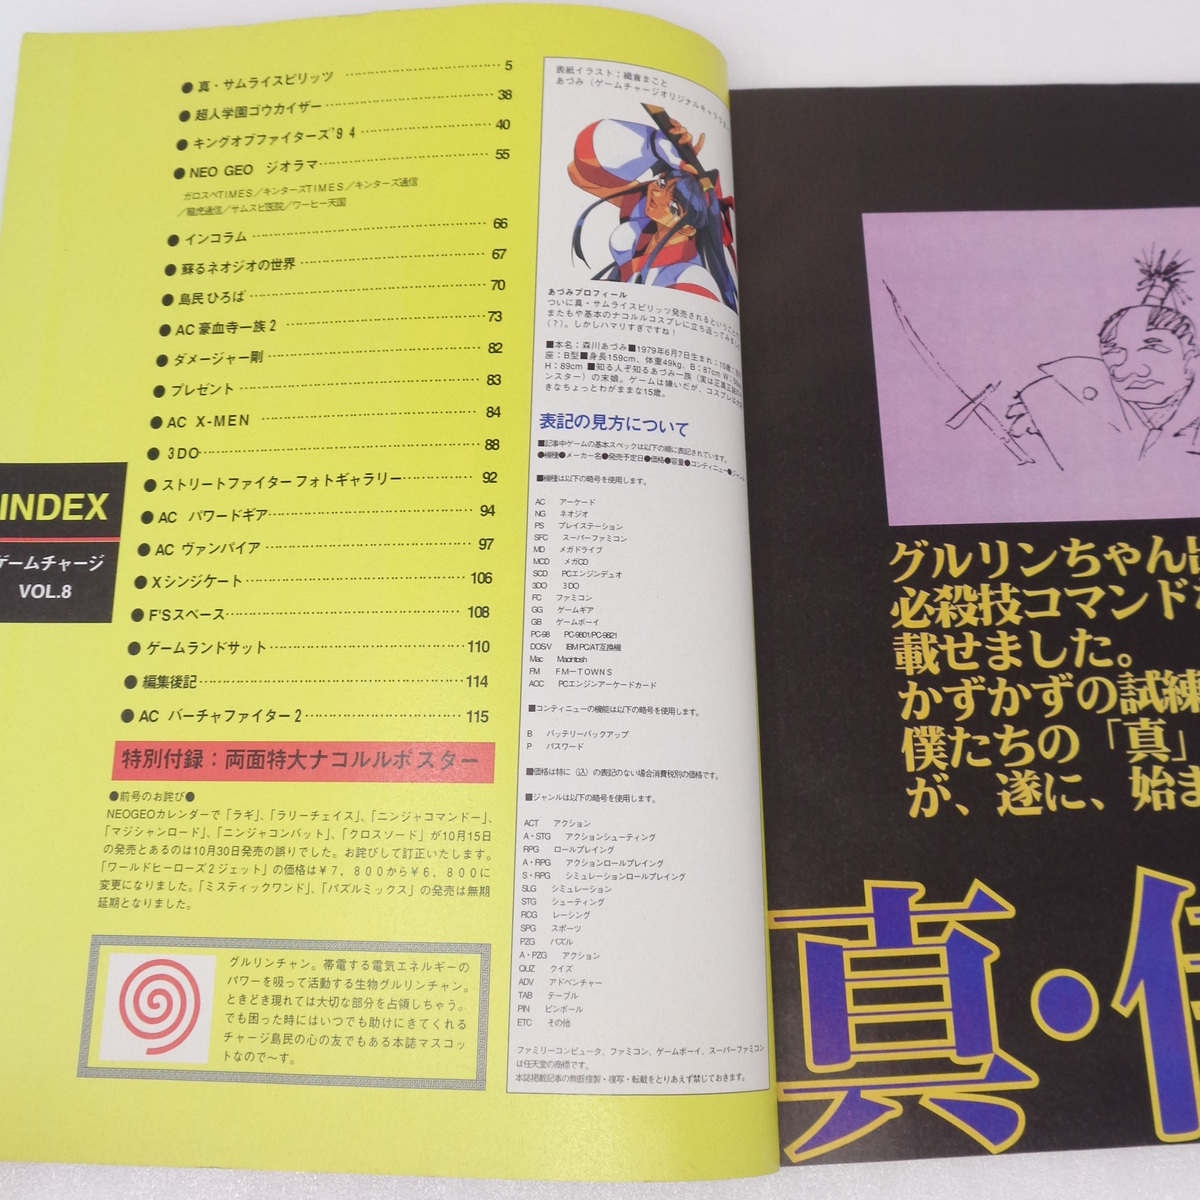 INDEX
ゲームチャージ
VOL.8
●真・サムライスピリッツ 5
●超人学園ゴウカイザー 38
●キングオブファイターズ'94 40
●NEO GEO ジオラマ 55
ガロスペTIMES／キンターズTIMES／キンターズ通信
／龍虎通信／サムスピ医院／ワーヒー天国
●インコラム 66
●蘇るネオジオの世界 67
●島民ひろば 70
●AC豪血寺一族2 73
●ダメージャー剛 82
●プレゼント 83
●AC X-MEN 84
●3DO 88
●ストリートファイター フォトギャラリー 92
●AC パワードギア 94
●AC ヴァンパイア 97
●Xシンジケート 106
●F'Sスペース 108
●ゲームランドサット 110
●編集後記 114
●AC バーチャファイター2 115
特別付録：両面特大ナコルルポスター
●前号のお詫び●
NEOGEOカレンダーで「ラギ」、「ラリーチェイス」、「ニンジャコマンドー」、
「マジシャンロード」、「ニンジャコンバット」、「クロスソード」が10月15日
の発売とあるのは10月30日発売の誤りでした。お詫びして訂正いたします。
「ワールドヒーローズ2ジェット」の価格は￥7，800から￥6，800に
変更になりました。「ミスティックワンド」、「パズルミックス」の発売は無期
延期となりました。
グルリンチャン。帯電する電気エネルギーの
パワーを吸って活動する生物グルリンチャン。
ときどき現れては大切な部分を占領しちゃう。
でも困った時にはいつでも助けにきてくれる
チャージ島民の心の友でもある本誌マスコッ
トなので〜す。
表紙イラスト：織倉まこと
あづみ（ゲームチャージオリジナルキャラクター
あづみプロフィール
ついに真・サムライスピリッツ発売されるということで
またもや基本のナコルルコスプレに立ち返ってみまし
（？）。しかしハマリすぎですね！
■本名：森川あづみ■1979年6月7日生まれ；15歳
座：B型■身長159cm、体重49kg、B：87cm W：
H：89cm ■知る人ぞ知るあづみ一族（実は正真正銘の
ンスター）の末娘。ゲームは嫌いだが、コスプレは
きなちょっとわがままな15歳。
表記の見方について
■記事中ゲームの基本スペックは以下の順に表記されています。
●機種●メーカー名●発売予定日●価格●容量●コンティニュー●ジャンル
■機種は以下の略号を使用します。
AC アーケード
NG ネオジオ
PS プレイステーション
SFC スーパーファミコン
MD メガドライブ
MCD メガCD
SCD PCエンジンデュオ
3DO 3DO
FC ファミコン
GG ゲームギア
GB ゲームボーイ
PC-98 PC-9801/PC-9821
DOS/V IBM PC/AT互換機
Mac Macintosh
FM FM－TOWNS
ACC PCエンジンアーケードカード
■コンティニューの機能は以下の略号を使用します。
B バッテリーバックアップ
P パスワード
■価格は特に（込）の表記のない場合消費税別の価格です。
■ジャンルは以下の略号を使用します。
ACT アクション
A・STG アクションシューティング
RPG ロールプレイング
A・RPG アクションロールプレイング
S・RPG シミュレーションロールプレイング
SLG シミュレーション
STG シューティング
RCG レーシング
SPG スポーツ
PZG パズル
A・PZG アクション
QUZ クイズ
ADV アドベンチャー
TAB テーブル
PIN ピンボール
ETC その他
ファミリーコンピュータ、ファミコン、ゲームボーイ、スーパーファミコン
は任天堂の商標です。
本誌掲載記事の無断複製・模写・転載をとりあえず禁じておきます。
グルリンちゃん
必殺技コマンド
載せました。
かずかずの試練
僕たちの「真」
が、遂に、始ま
真・